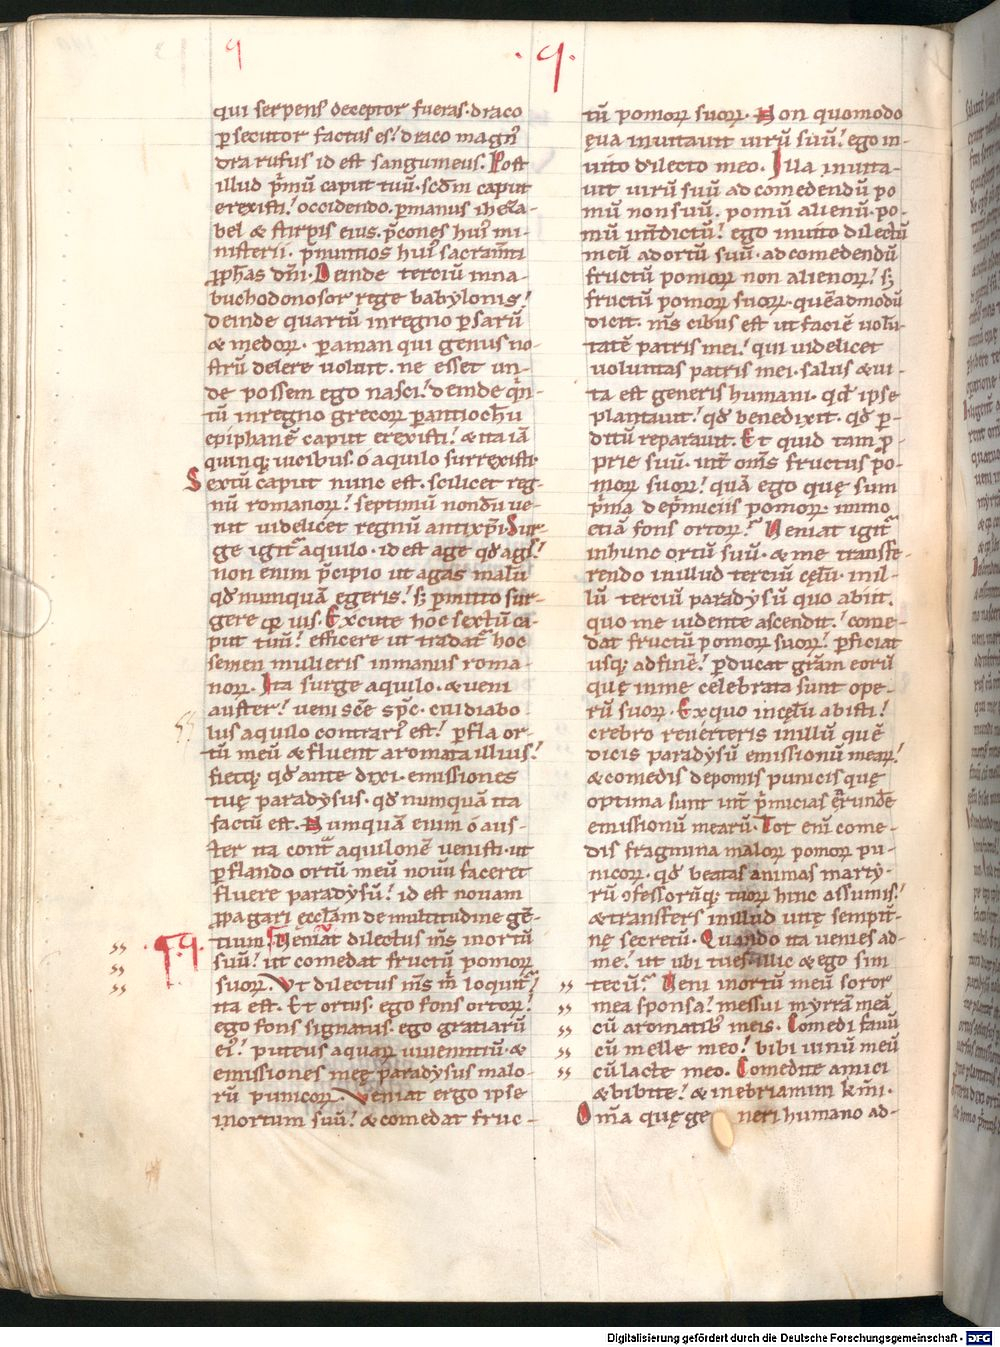 q
. q .
qui serpens deceptor fueras. draco
p̱secutor factus es. draco magnꝰ
dra rufus id est sanguineus. Post
illud pͥmū caput tuū. scdm caput
erexisti. occidendo. p̱manus iheza-
bel & stirpis eius. p̄cones huiꝰ mi-
nisterii. p̱nuntios huiꝰ sacram̄ti
ꝓphas dn̄i. Deinde terciū inna-
buchodonosor rege babylonis.
deinde quartū inregno p̱sarū
& medoꝝ. p̱aman qui genus no-
strū delere voluit. ne esset un-
de possem ego nasci. deinde qͥn-
tū inregno grecoꝝ p̱antiochū
epiphanē caput erexisti. & ita iā
quinq; vicibus. o aquilo surrexisti.
Sextū caput nunc est. scilicet reg-
nū romanoꝝ. septimū nondū ve-
nit videlicet regnū antixp̄i. Sur-
ge igit̄ aquilo. id est age qd̄ agis.
non enim p̄cipio ut agas malū
qd̄ nunquā egeris. s; p̱mitto sur-
gere qꝛ vis. Excute hoc sextū ca-
put tuū. efficere ut tradat̄ hoc
semen mulieris inmanus roma-
noꝝ. Ita surge aquilo. & veni
auster. veni scē spc̄. cui diabo
lus aquilo contrariꝰ est. p̱fla or-
tū meū & fluent aromata illius.
fietq; qd̄ ante dixi. emissiones
tuę paradysus. qd̄ nunquā ita
factū est. Nunquā enim o aus-
ter ita cont̄ aquilonē venisti. ut
p̱flando ortū meū novū faceret
fluere paradysū. id est novam
ꝓpagari ęcclam de multitudine gē-
tium. Veniat dilectus m̄s inortū
suū. ut comedat fructū pomoꝝ
suoꝝ. Vt dilectus m̄s m̄ loquit̄.
ita est. Et ortus. ego fons ortoꝝ.
ego fons signatus. ego gratiarū
eiꝰ. puteus aquaꝝ viventiū. &
emissiones meę paradysus malo-
rū punicoꝝ. Veniat ergo ipse
inortum suū. & comedat fruc-
tū pomoꝝ suoꝝ. Non quomodo
ęva invitavit virū suū. ego in-
vito dilecto meo. Illa invita-
vit virū suū ad comedendū po
mū non suū. pomū alienū. po-
mū int̄dictū. ego invito dilectū
meū ad ortū suū. ad comedendū
fructū pomoꝝ non alienoꝝ. s;
fructū pomoꝝ suoꝝ. quēadmodū
dicit. m̄s cibus est ut faciē volū-
tatē patris mei. qui videlicet
voluntas patris mei. salus & vi-
ta est generis humani. qd̄ ipse
plantavit. qd̄ benedixit. qd̄ p̱-
ditū reparavit. Et quid tam ꝓ-
prie suū. int̄ om̄s fructus po-
moꝝ suoꝝ. quā ego quę sum
pͥma dep̱miciis pomoꝝ. immo
etiā fons ortoꝝ. Veniat igit̄
inhunc ortū suū. & me transfe-
rendo inillud terciū cęlū. inil-
lū terciū paradysū quo abiit.
quo me vidente ascendit. come-
dat fructū pomoꝝ suoꝝ. p̱ficiat
usq; ad finē. p̱ducat grām eorū
quę inme celebrata sunt ope-
rū suoꝝ. Ex quo incęlū abisti.
crebro reverteris inillū quē
dicis paradysū emissionū meaꝝ.
& comedis de pomis punicis quę
optima sunt int̄ pͥmicias
emissionū mearū. Tot eni come-
dis fragmina maloꝝ pomoꝝ pu-
nicoꝝ. qd̄ beatas animas marty-
rū ꝯfessorūq; tuoꝝ hinc assumis.
& transfers inillud vitę sempit̄-
nę secretū. Quando ita venies ad
me. ut ubi tu es. illic & ego sim
tecū. Veni inortū meū soror
mea sponsa. messui myrrā meā
cū aromatibꝰ meis. Comedi favū
cū melle meo. bibi vinū meū
cū lacte meo. Comedite amici
& bibite. & inebriamini km̄i.
Om̄a quę generi humano ad-
Digitalisierung gefördert durch die Deutsche Forschungsgemeinschaft - DFG